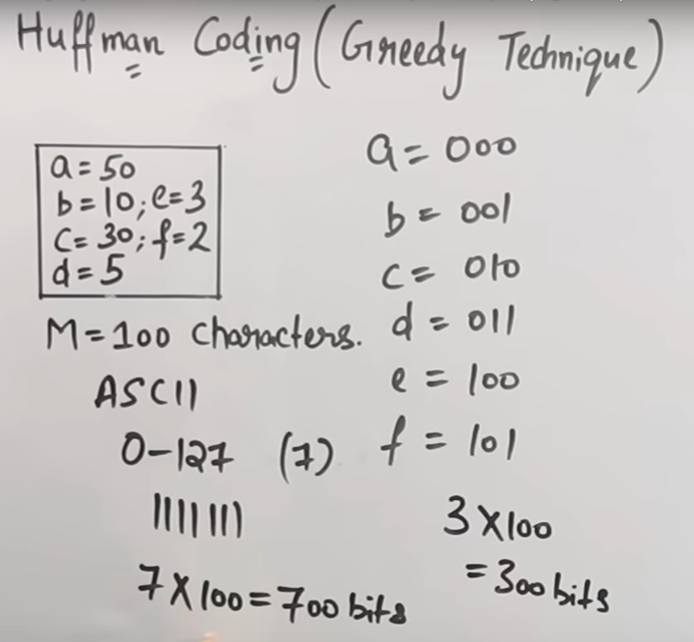 Huffman Coding (Greedy Technique)
a=50
b=10; e=3
c=30; f=2
d=5
M=100 characters.
ASCII
0-127 (7)
1111111
7×100=700 bits
a=000
b=001
c=010
d=011
e=100
f=101
3×100
=300 bits